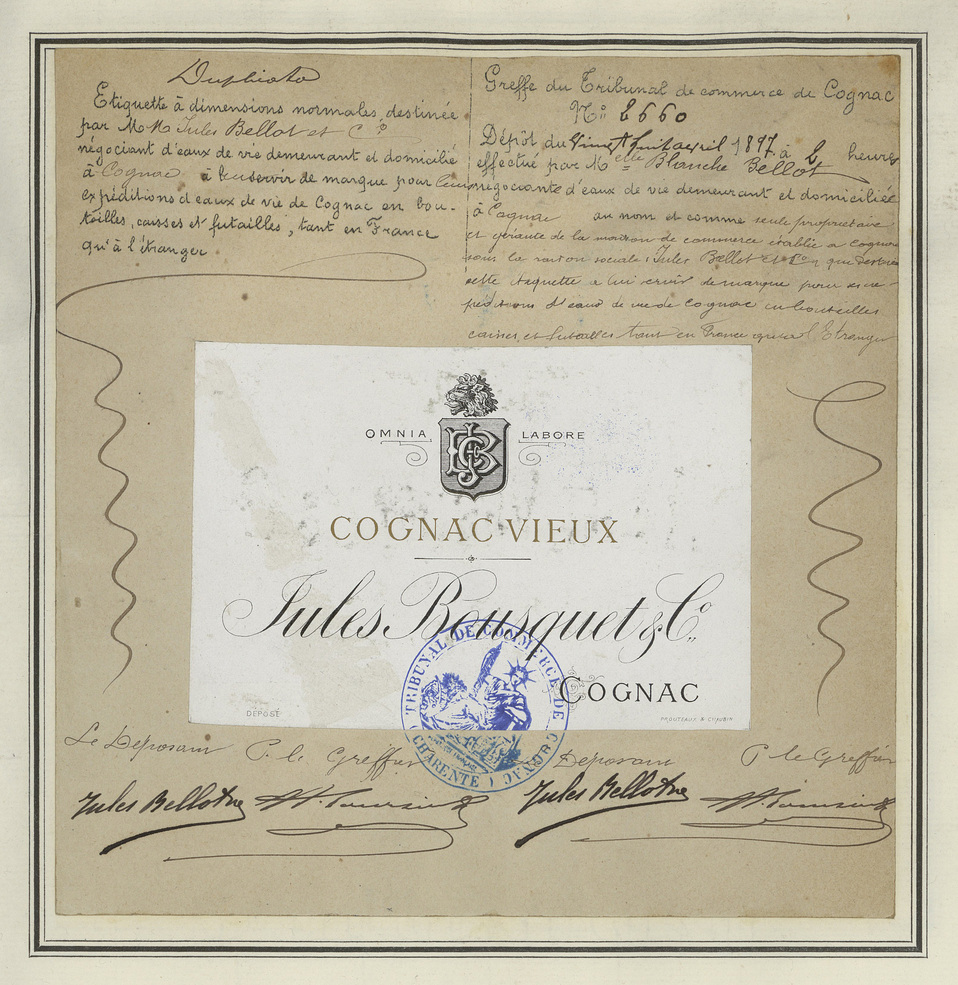 Duplicata
Etiquette à dimensions normales, destinée
par MM Jules Bellot et Cie
négociant d'eaux de vie demeurant et domicilié
à Cognac à leur servir de marque pour leurs
expéditions d'eaux de vie de Cognac en bou-
teilles, caisses et futailles, tant en France
qu'à l'étranger
Greffe du Tribunal de commerce de Cognac
No 2660
Dépôt du Vingt huit avril 1897 à 2 heures
effectué par Melle Blanche Bellot
négociante d'eaux de vie demeurant et domiciliée
à Cognac au nom et comme seule propriétaire
et gérante de la maison de commerce établie à Cognac
sous la raison sociale: Jules Bellot et Co que destine
cette étiquette à lui servir de marque pour ses ex-
péditions d'eaux de vie de Cognac en bouteilles
caisses et futailles tant en France qu'à l'Etranger
OMNIA LABORE
JBC
COGNAC VIEUX
Jules Bousquet & Co
COGNAC
DÉPOSÉ
PROUTEAUX & CHAUBIN
TRIBUNAL DE COMMERCE DE COGNAC
(CHARENTE)
Le Déposant P. le Greffier Déposant P le Greffier
Jules Bellot Jules Bellot